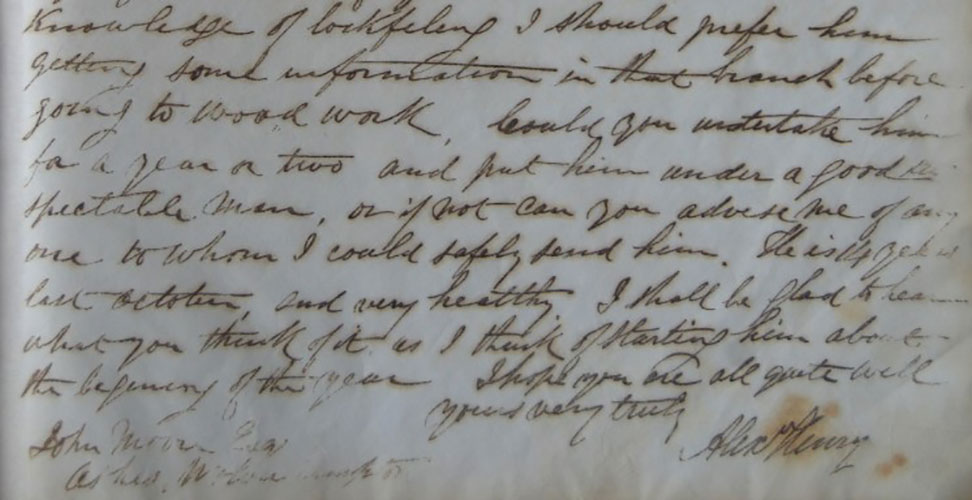 Knowledge of lockfileing I should prefer him
getting some information in that branch before
going to wood work, Could you undertake him
for a year or two and put him under a good re
spectable Man, or if not can you advise me of any
one to whom I could safely send him. He is 14 years
last october, and very healthy. I shall be glad to hear
what you think of it as I think of starting him about
the begining of the year I hope you are all quite well
yours very truly
Alexr Henry
John Moore Esq